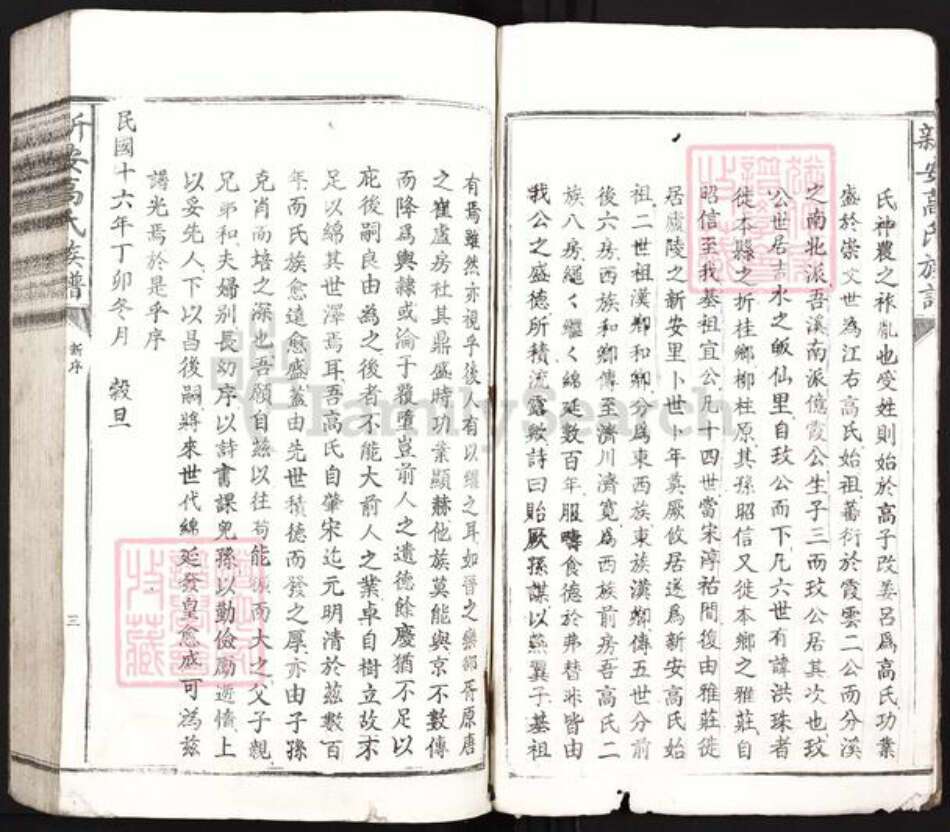 新安高氏族譜
氏神農之祚胤也受姓則始於高子改姜呂為高氏功業
盛於崇文世為江右高氏始祖蕃衍於霞雲二公而分溪
之南北派吾溪南派億霞公生子三而玫公居其次也玫
公世居吉水之皈仙里自玫公而下凡六世有諱洪珠者
徙本縣之折桂鄉柳柱原其孫昭信又徙本鄉之雅莊自
昭信至我基祖宜公凡十四世當宋淳祐間復由雅莊徙
居廬陵之新安里卜世卜年奠厥攸居遂為新安高氏始
祖二世祖漢卿和卿分為東西族東族漢卿傳五世分前
後六房西族和卿傳至濟川濟寬為西族前房吾高氏二
族八房繩〱繼〱綿延數百年服疇食德於弗替非皆由
我公之盛德所積流露歟詩曰貽厥孫謀以燕翼子基祖
有焉雖然亦視乎後人有以繼之耳如晉之欒郤胥原唐
之崔盧房杜其鼎盛時功業顯赫他族莫能與京不數傳
而降為輿隸或淪于覆墮豈前人之遺德餘慶猶不足以
庇後嗣良由為之後者不能大前人之業卓自樹立故不
足以綿其世澤焉耳吾高氏自肇宋迄元明清於茲數百
年而氏族愈遠愈盛蓋由先世積德而發之厚亦由子孫
克肖而培之深也吾願自茲以往苟能擴而大之父子親
兄弟和夫婦別長幼序以詩書課兒孫以勤儉勵遊惰上
以妥先人下以昌後嗣將來世代綿延發皇愈盛可為茲
譜光焉於是乎序
民國十六年丁卯冬月 穀旦
新安高氏族譜
新序
三
FamilySearch